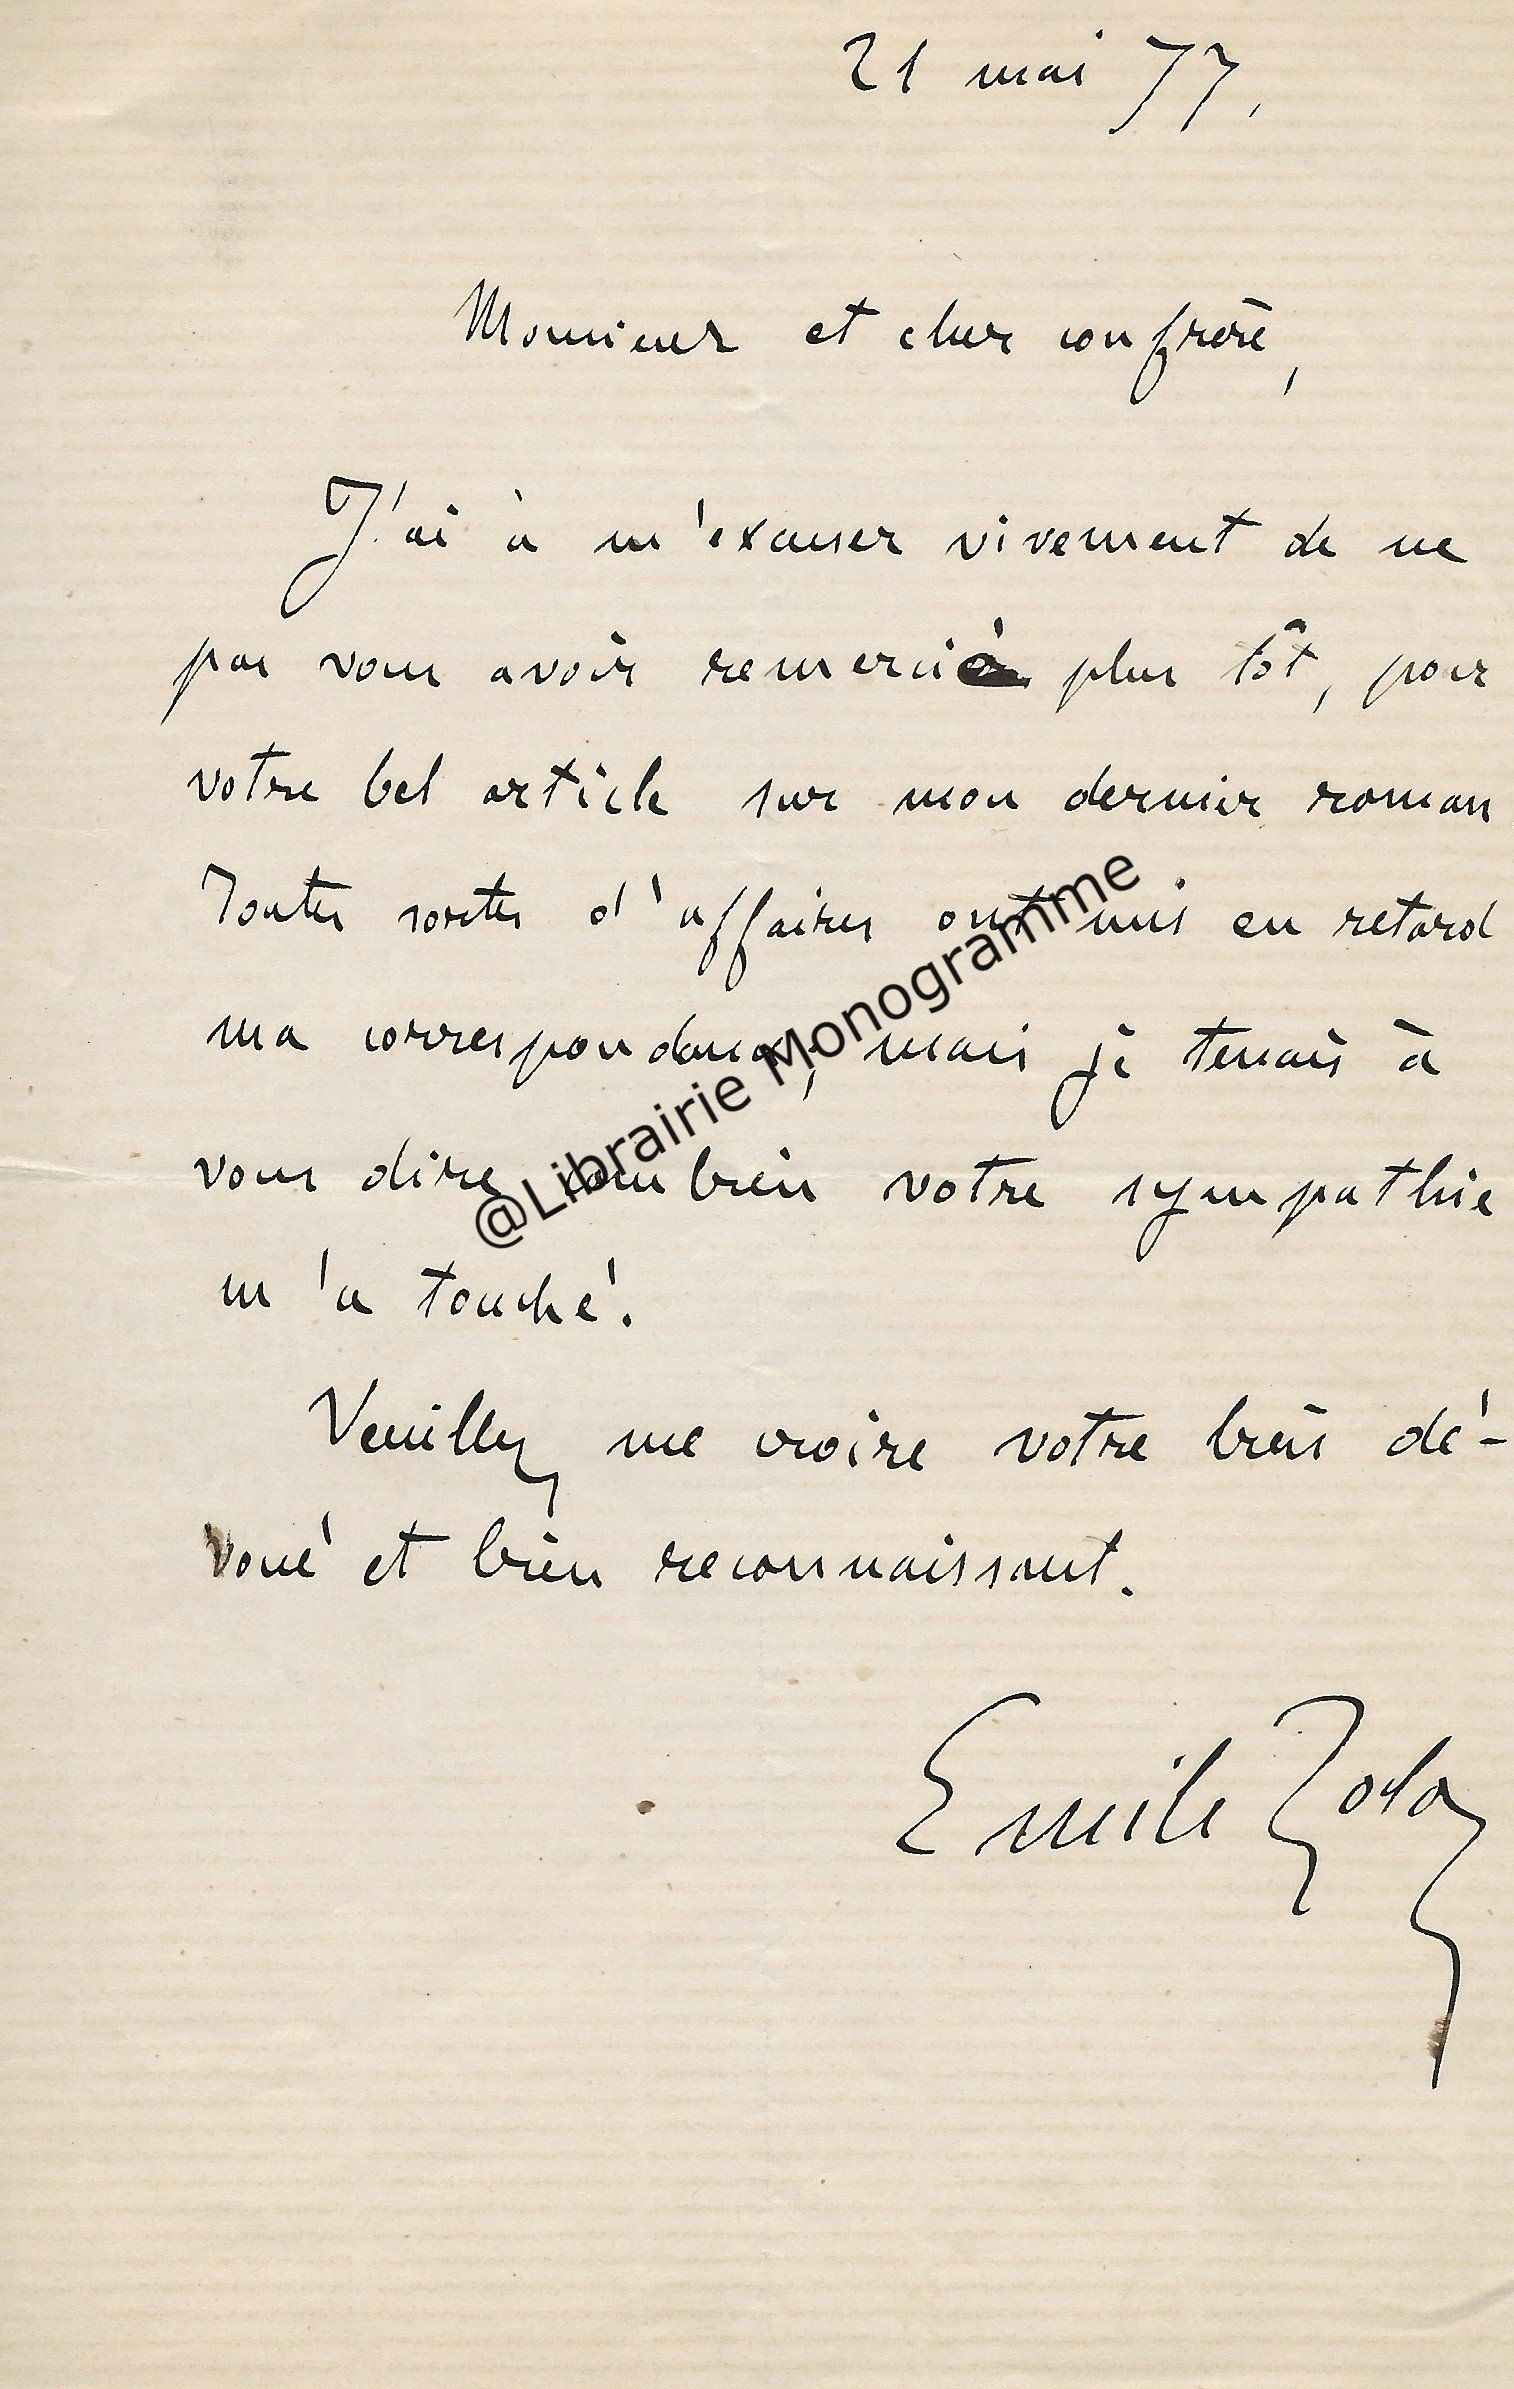 21 mai 77,
Monsieur et cher confrère,
J'ai à m'excuser vivement de ne
pas vous avoir remercié plus tôt, pour
votre bel article sur mon dernier roman
Toutes sortes d'affaires ont mis en retard
ma correspondance, mais je tenais à
vous dire combien votre sympathie
m'a touché.
Veuillez me croire votre bien dé-
voué et bien reconnaissant.
Emile Zola
@Librairie Monogramme